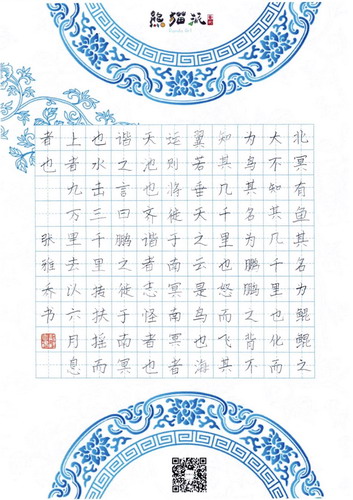 熊猫派
北冥有鱼其名为鲲鲲之
大不知其几千里也化而
为鸟其名为鹏鹏之背不
知其几千里也怒而飞其
翼若垂天之云是鸟也海
运则将徙于南冥南冥者
天池也齐谐者志怪者也
谐之言曰鹏之徙于南冥
也水击三千里抟扶摇而
上者九万里去以六月息
者也 张雅乔书